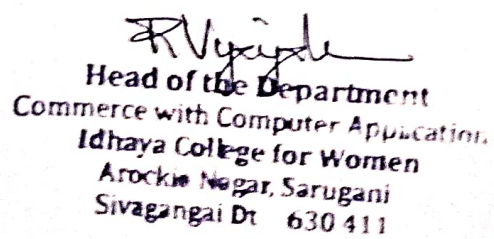 Head of the Department
Commerce with Computer Application.
Idhaya College for Women
Arockia Nagar, Sarugani
Sivagangai Dt 630 411